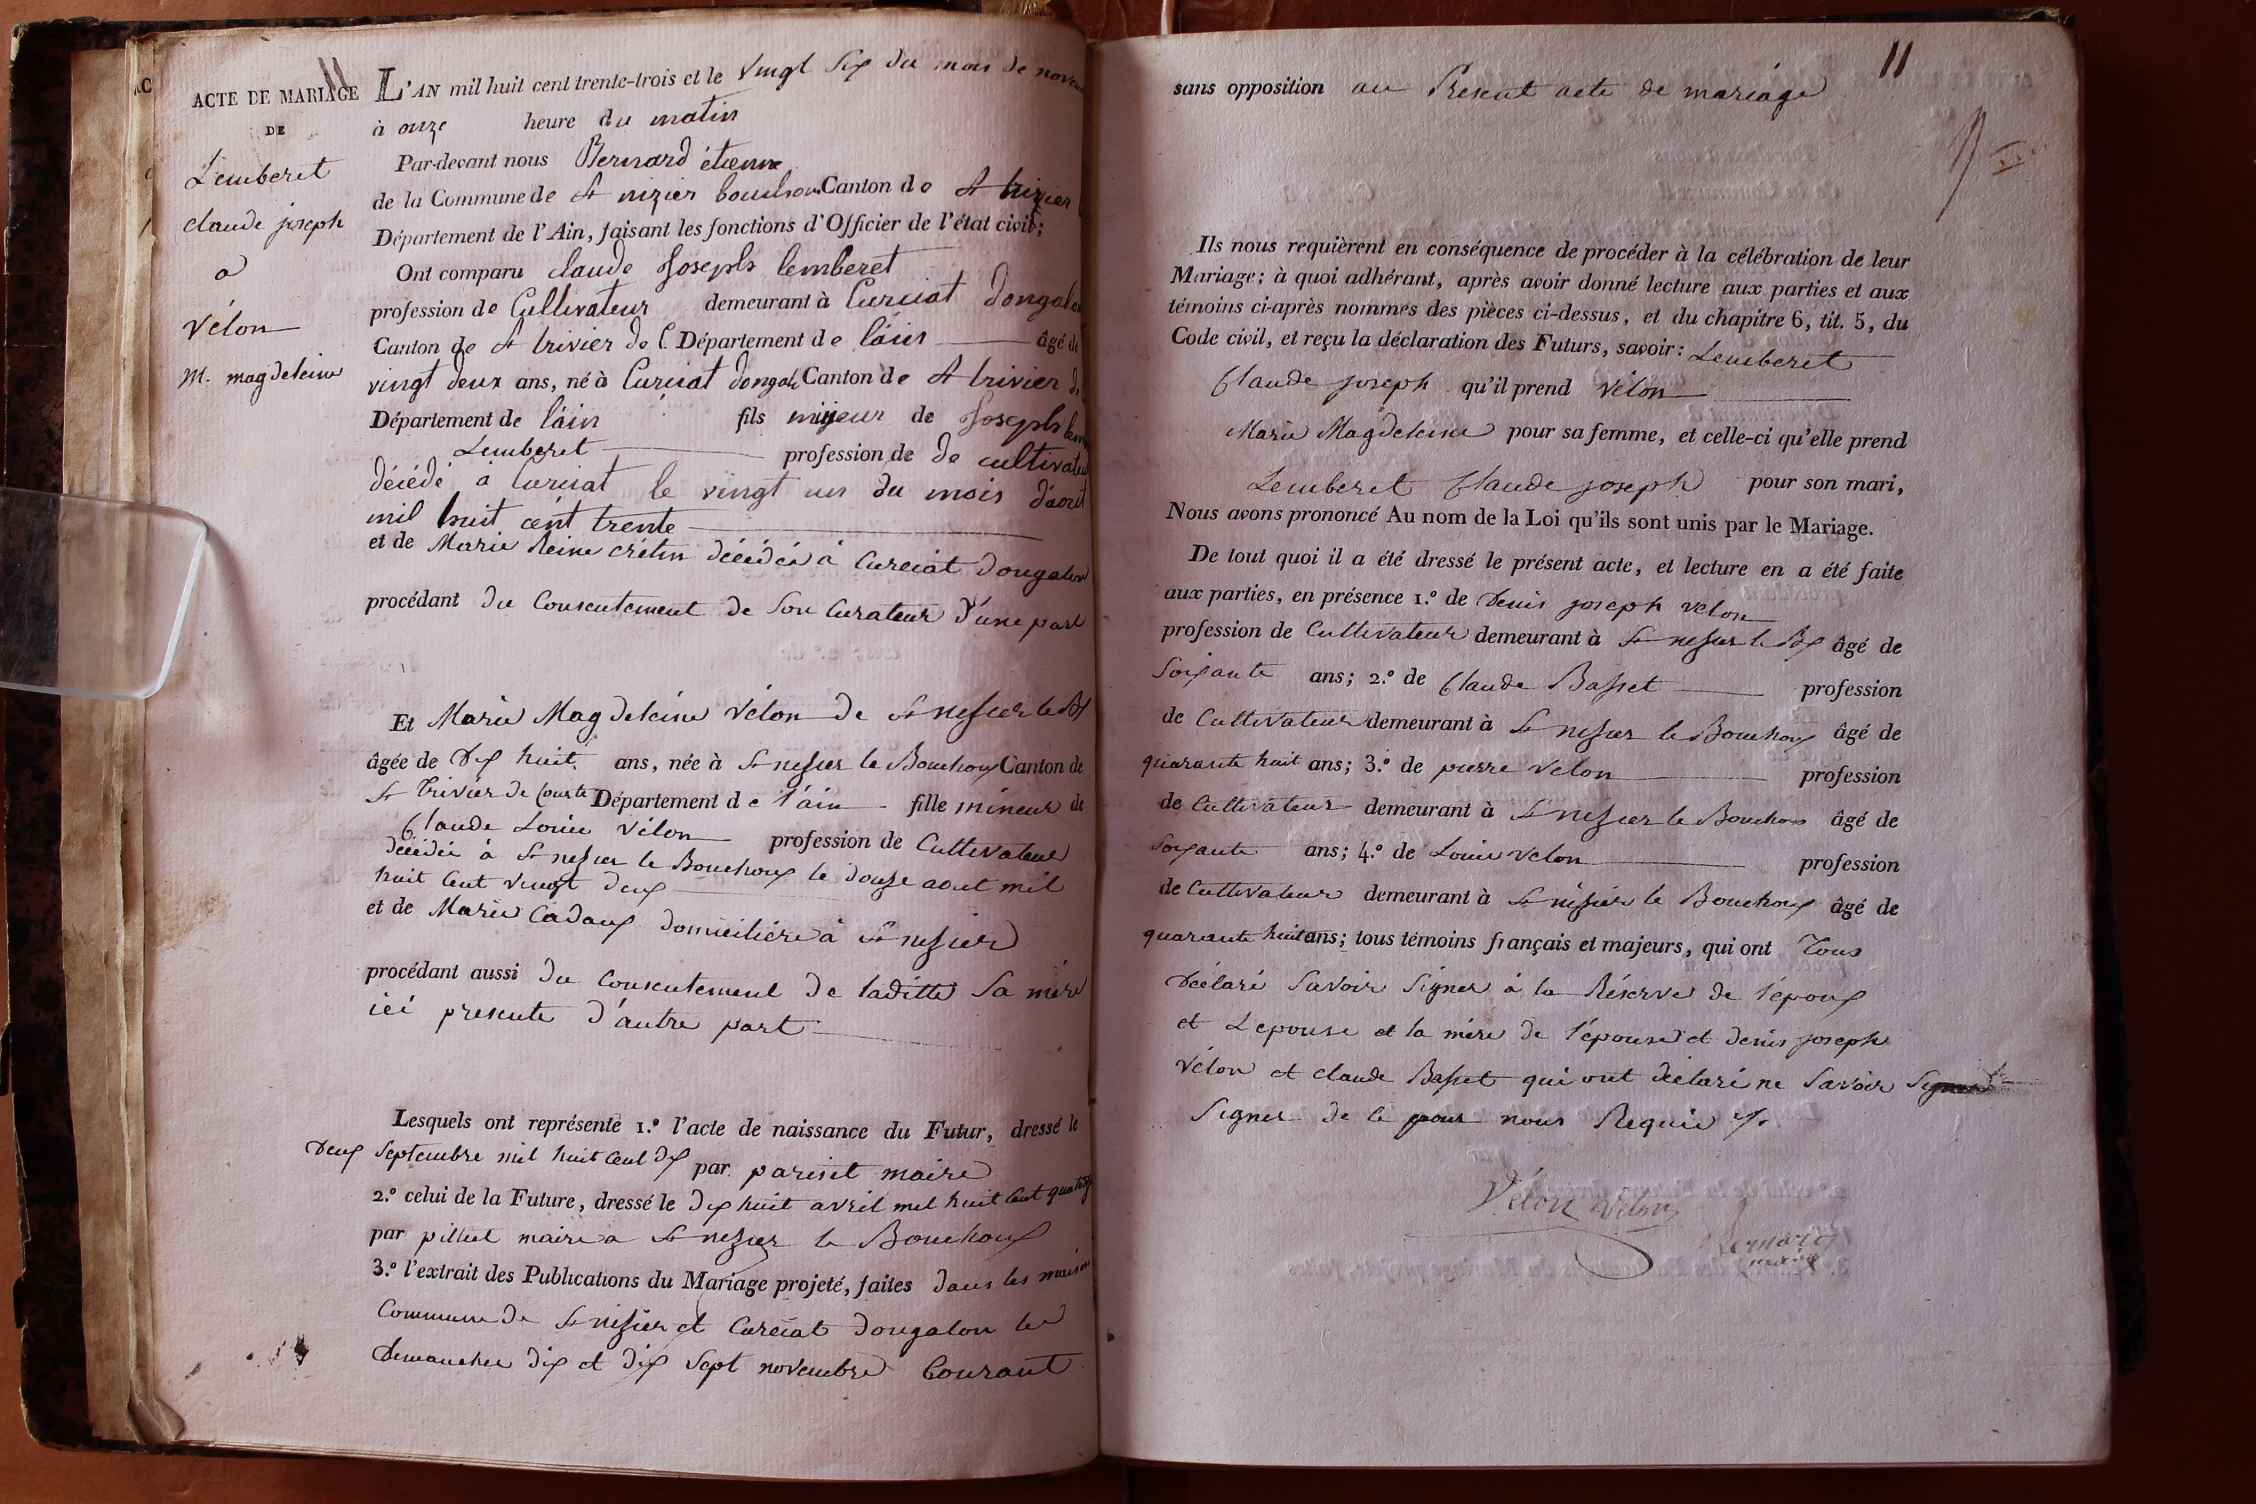 11
ACTE DE MARIAGE
DE
Lemberet
claude joseph
a
vélon
M. magdeleine
L'AN mil huit cent trente-trois et le vingt six du mois de novem
à onze heure du matin
Par-devant nous Bernard étienne
de la Commune de St nizier bouchoux Canton de St trivier
Département de l'Ain, faisant les fonctions d'Officier de l'état civil;
Ont comparu claude Joseph lemberet
profession de Cultivateur demeurant à Curciat dongalon
Canton de St trivier de C. Département de l'áin âgé de
vingt deux ans, né à Curciat dongal Canton de St trivier de
Département de l'áin fils majeur de Joseph lem
Lemberet profession de de cultivateur
décédé à Curciat le vingt un du mois d'aout
mil huit cent trente
et de Marie Reine crétin décédée à Curciat dongalon
procédant du Consentement de Son Curateur d'une part
Et Marie Magdeleine vélon de St nesier le Bx
âgée de Dix huit ans, née à St nesier le Bouchoux Canton de
St Trivier de Courte Département de l'áin fille mineur de
Claude Louis vélon profession de Cultivateur
décédée à St nesier le Bouchoux le douze aout mil
huit Cent vingt deux
et de Marie Cadoux domiciliére à St nesier
procédant aussi du Consentement de ladette Sa mére
ici presente d'autre part
Lesquels ont représenté 1.º l'acte de naissance du Futur, dressé le
Deux Septembre mil huit Cent dix par parisit maire
2.º celui de la Future, dressé le dix huit avril mil huit Cent quatorze
par pilliet maire a St nezier le Bouchoux
3.º l'extrait des Publications du Mariage projeté, faites dans les maison
Commune de St nisier et Curciat dongalon les
Demanches dix et dix Sept novembre Courant
11
sans opposition au Present acte de mariage
Ils nous requièrent en conséquence de procéder à la célébration de leur
Mariage; à quoi adhérant, après avoir donné lecture aux parties et aux
témoins ci-après nommés des pièces ci-dessus, et du chapitre 6, tit. 5, du
Code civil, et reçu la déclaration des Futurs, savoir: Lemberet
Claude joseph qu'il prend vélon
Marie Magdeleine pour sa femme, et celle-ci qu'elle prend
Lemberet Claude joseph pour son mari,
Nous avons prononcé Au nom de la Loi qu'ils sont unis par le Mariage.
De tout quoi il a été dressé le présent acte, et lecture en a été faite
aux parties, en présence 1.º de Denis joseph vélon
profession de Cultivateur demeurant à St nesier le Bx âgé de
Soixante ans; 2.º de Claude Basset profession
de Cultivateur demeurant à St nesier le Bouchoux âgé de
quarante huit ans; 3.º de pierre vélon profession
de Cultivateur demeurant à St nesier le Bouchoux âgé de
soixante ans; 4.º de Louis vélon profession
de Cultivateur demeurant à St nisier le Bouchoux âgé de
quarante huit ans; tous témoins français et majeurs, qui ont Tous
Déclaré Savoir Signer à la Réserve de l'époux
et L'epouse et la mére de l'épouse et denis joseph
vélon et claude Basset qui ont déclaré ne Savoir
Signer de ce pour nous Requis
Vélon vélon
Bernard
maire